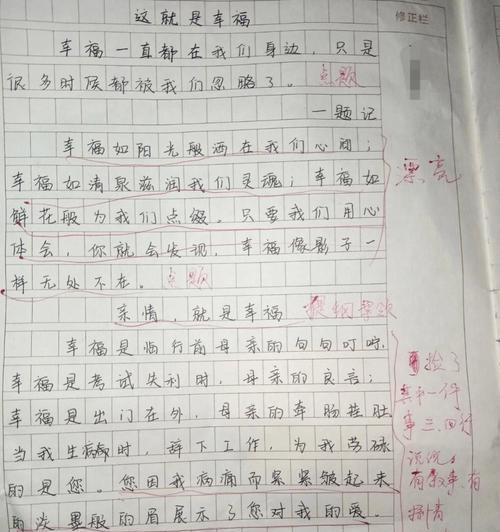 这就是幸福
修正栏
幸福一直都在我们身边,只是
很多时候都被我们忽略了。 点题
一题记
幸福如阳光般洒在我们心间;
幸福如清泉滋润我们灵魂;幸福如
鲜花般为我们点缀。只要我们用心
体会,你就会发现,幸福像影子一
样无处不在。 点题
漂亮
亲情,就是幸福 提纲挈领
幸福是临行前母亲的句句叮咛,
幸福是考试失利时,母亲的良言;
幸福是出门在外,母亲的牵肠挂肚
当我生病时,辞下工作,为我劳碌
的是您。您因我病痛而紧紧皱起来
的淡墨般的眉展示了您对我的爱。
捡了
一件
事三、四行
说说
有叙事、有
抒情